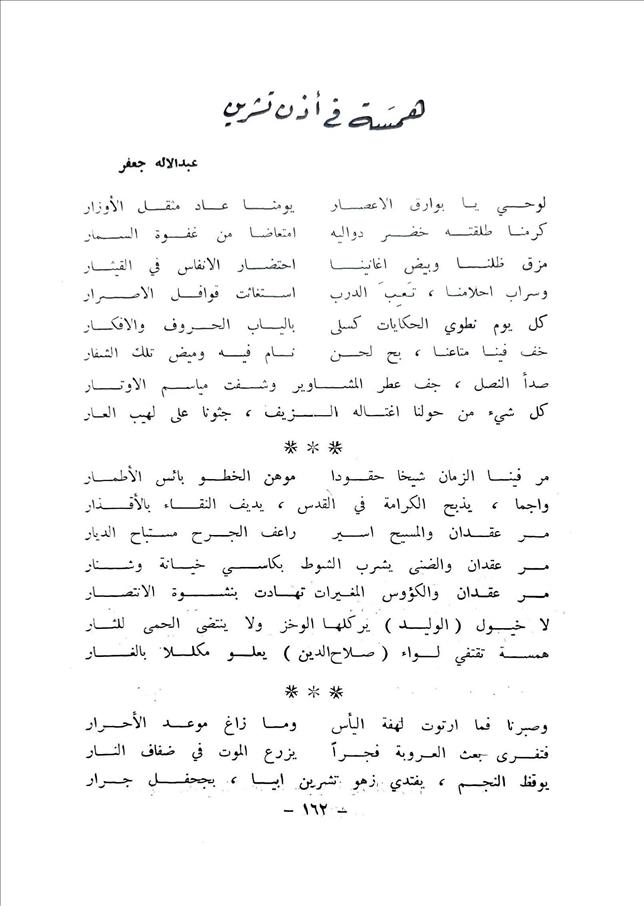 همسة في أذن تشرين
عبدالاله جعفر
لوحي يا بوارق الاعصار يومنا عاد مثقل الأوزار
كرمنا طلقته خضر دواليه امتعاضا من غفوة السمار
مزق ظلنا وبيض اغانينا احتضار الانفاس في القيثار
وسراب احلامنا ، تَعِبَ الدرب استغاثت قوافل الاصرار
كل يوم نطوي الحكايات كسلى باليباب الحروف والافكار
خف فينا متاعنا ، بح لحن نام فيه وميض تلك الشفار
صدأ النصل ، جف عطر المشاوير وشفت مياسم الاوتار
كل شيء من حولنا اغتاله الزيف ، جثونا على لهيب العار
* * *
مر فينا الزمان شيخا حقودا موهن الخطو بائس الأطمار
واجما ، يذبح الكرامة في القدس ، يديف النقاء بالأقذار
مر عقدان والمسيح اسير راعف الجرح مستباح الديار
مر عقدان والضنى يشرب الشوط بكاسي خيانة وشنار
مر عقدان والكؤوس المغيرات تهادت بنشوة الانتصار
لا خيول ( الوليد ) يركلها الوخز ولا ينتضى الحمى للثار
همسة تقتفي لواء ( صلاح الدين ) يعلو مكللا بالغار
* * *
وصبرنا فما ارتوت لهفة اليأس وما زاغ موعد الأحرار
فتفرى بعث العروبة فجراً يزرع الموت في ضفاف النار
يوقظ النجم ، يفتدي زهو تشرين ابيا ، بجحفل جرار
- ١٦٢ -